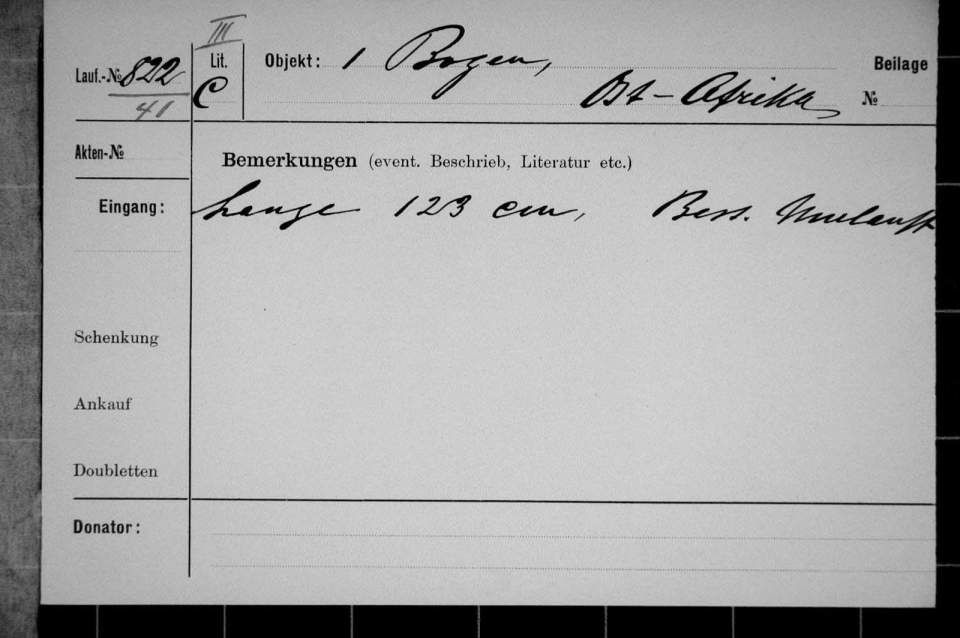 III
Lauf.-№ 822 Lit. Objekt: 1 Bogen, Beilage
41 C Ost-Afrika №
Akten-№
Bemerkungen (event. Beschrieb, Literatur etc.)
Eingang: Lange 123 cm, Bess.
Schenkung
Ankauf
Doubletten
Donator: